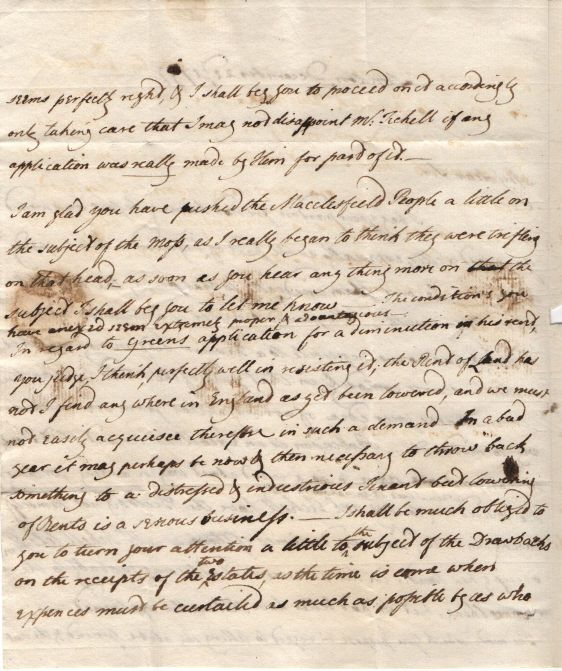 seems perfectly right, & I shall beg you to proceed on it accordingly
only taking care that I may not disappoint Mr. Tichell if any
application was really made by Him for part of it. —
I am glad you have pushed the Macclesfield People a little on
the subject of the Moss, as I really began to think they were trifling
on that head, as soon as you hear any thing more on that the
subject I shall beg you to let me know — The conditions you
have anexed seem extremely proper & advantageous —
In regard to Greens application for a diminution in his rent,
you judge, I think, perfectly well in resisting it, the Rent of Land has
not I find any where in England as yet been lowered, and we must
not easily acquiesce therefore in such a demand In a bad
year it may perhaps be now & then necessary to throw back
something to a distressed & industrious Tenant but lowering
of Rents is a serious business. — I shall be much obliged to
you to turn your attention a little to the subject of the Drawbacks
on the receipts of the two Estates, as the time is come when
expences must be curtailed as much as possible by us who